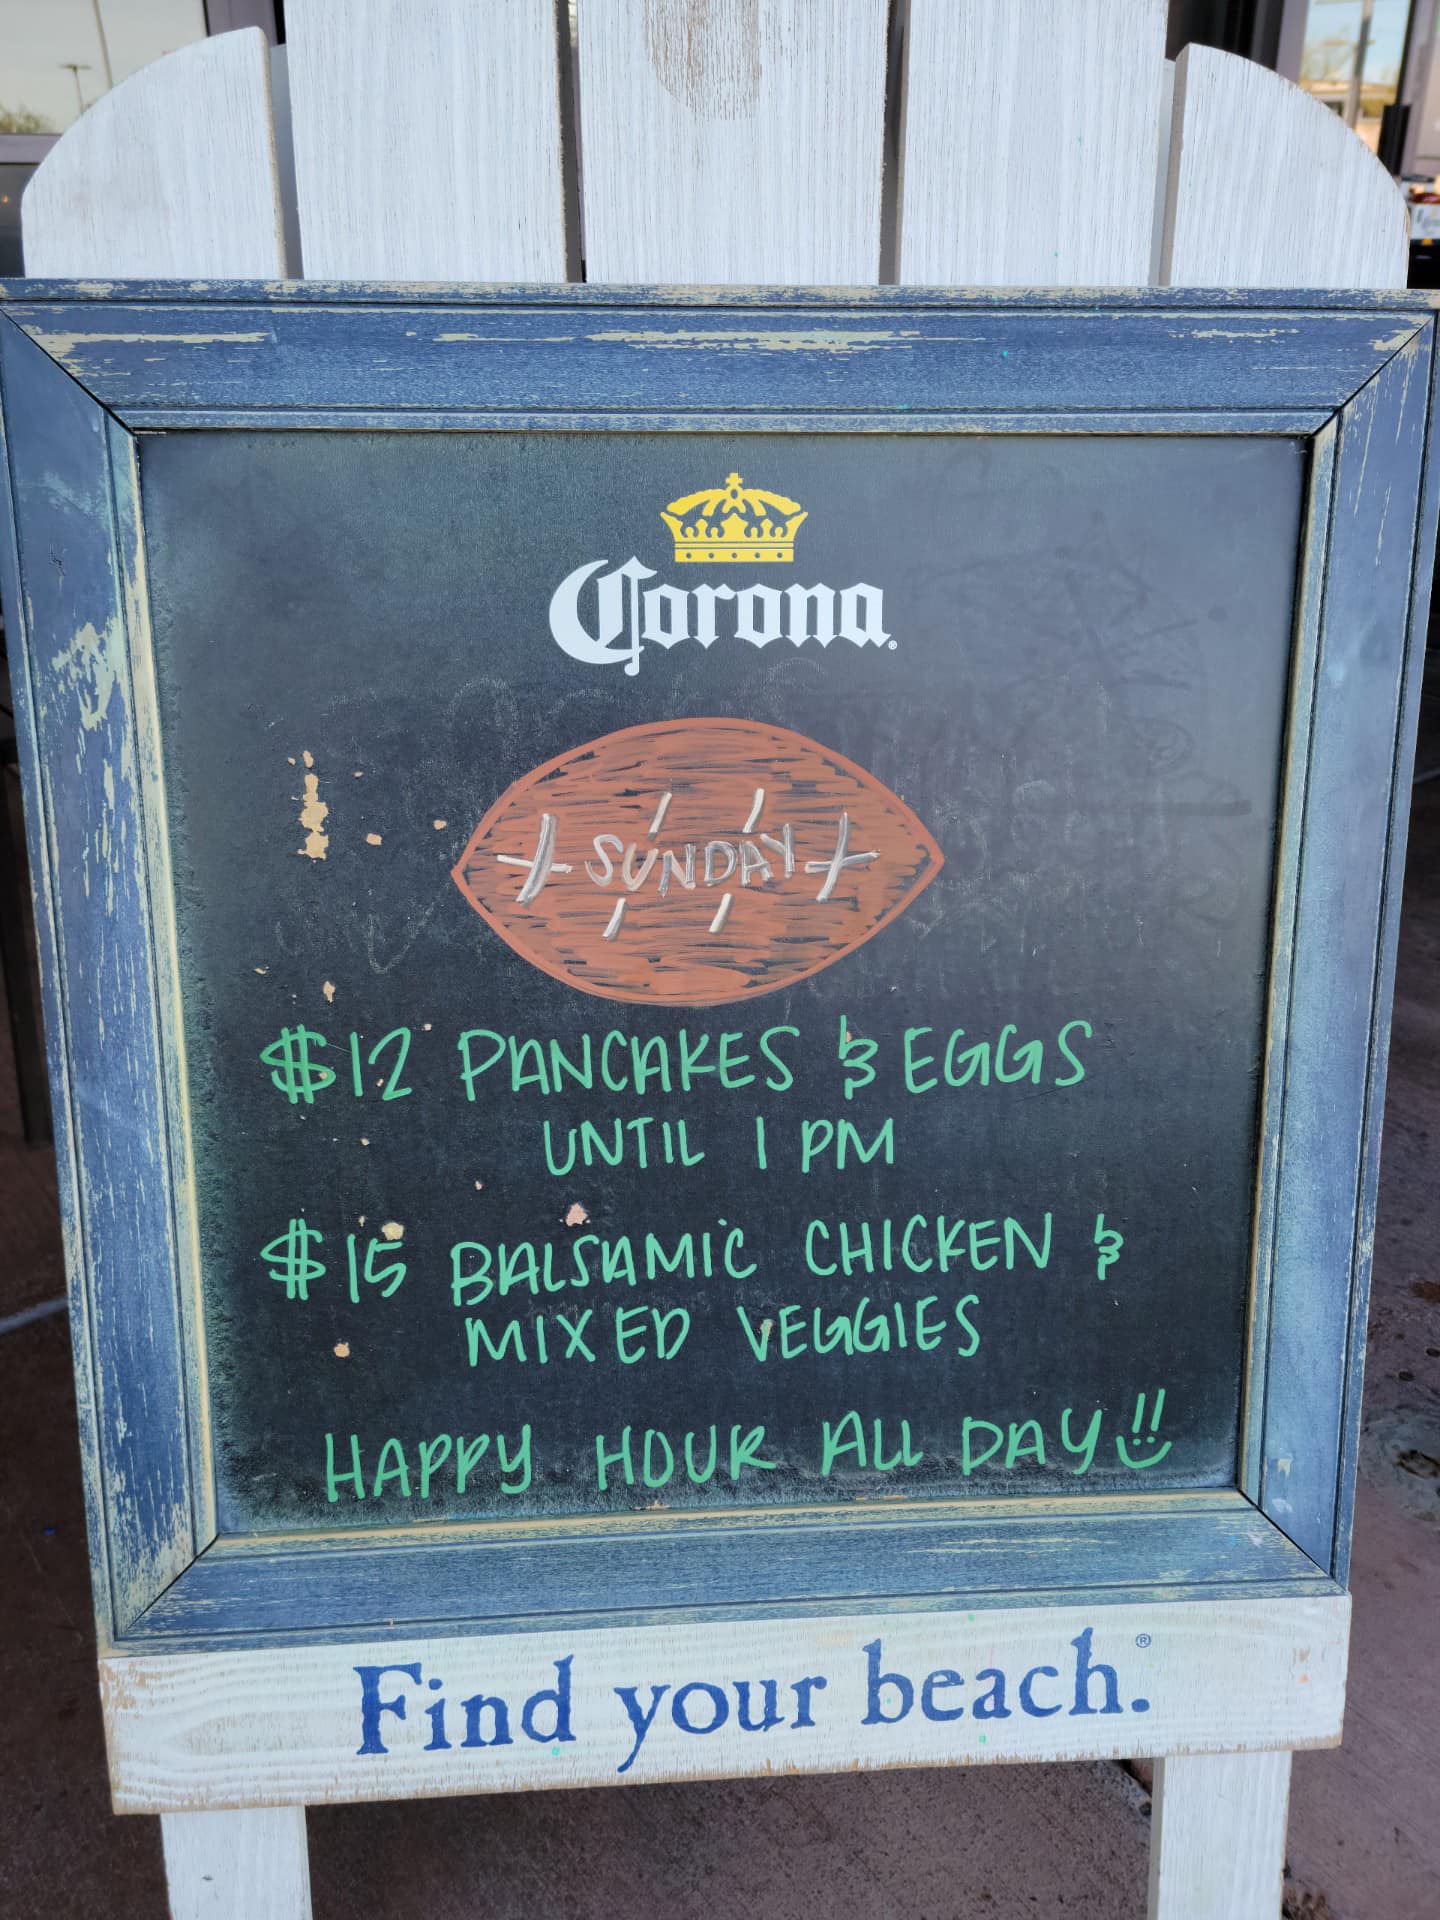 Corona®
SUNDAY
$12 PANCAKES & EGGS
UNTIL 1 PM
$15 BALSAMIC CHICKEN &
MIXED VEGGIES
HAPPY HOUR ALL DAY!!
Find your beach.®